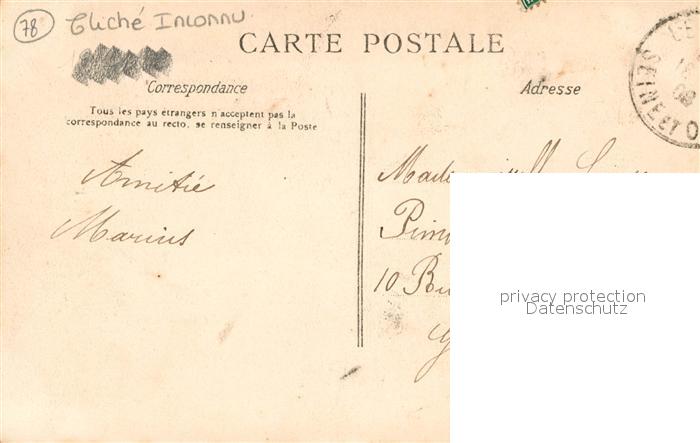 78 Cliché Inconnu
CARTE POSTALE
Correspondance
Adresse
Tous les pays étrangers n'acceptent pas la
correspondance au recto, se renseigner à la Poste
SEINE ET O
Amitié
Marius
Mademoiselle
10
privacy protection
Datenschutz